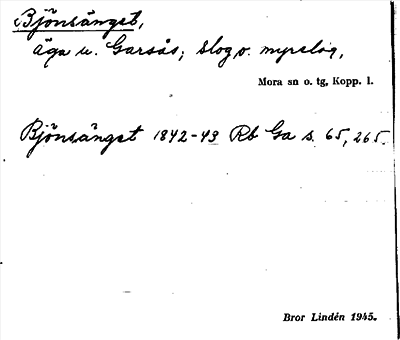 Björsänget,
äga u. Garsås; slog o. myrslog,
Mora sn o. tg, Kopp. l.
Björsänget 1842-43 Rb Ga s. 65, 265.
Bror Lindén 1945.